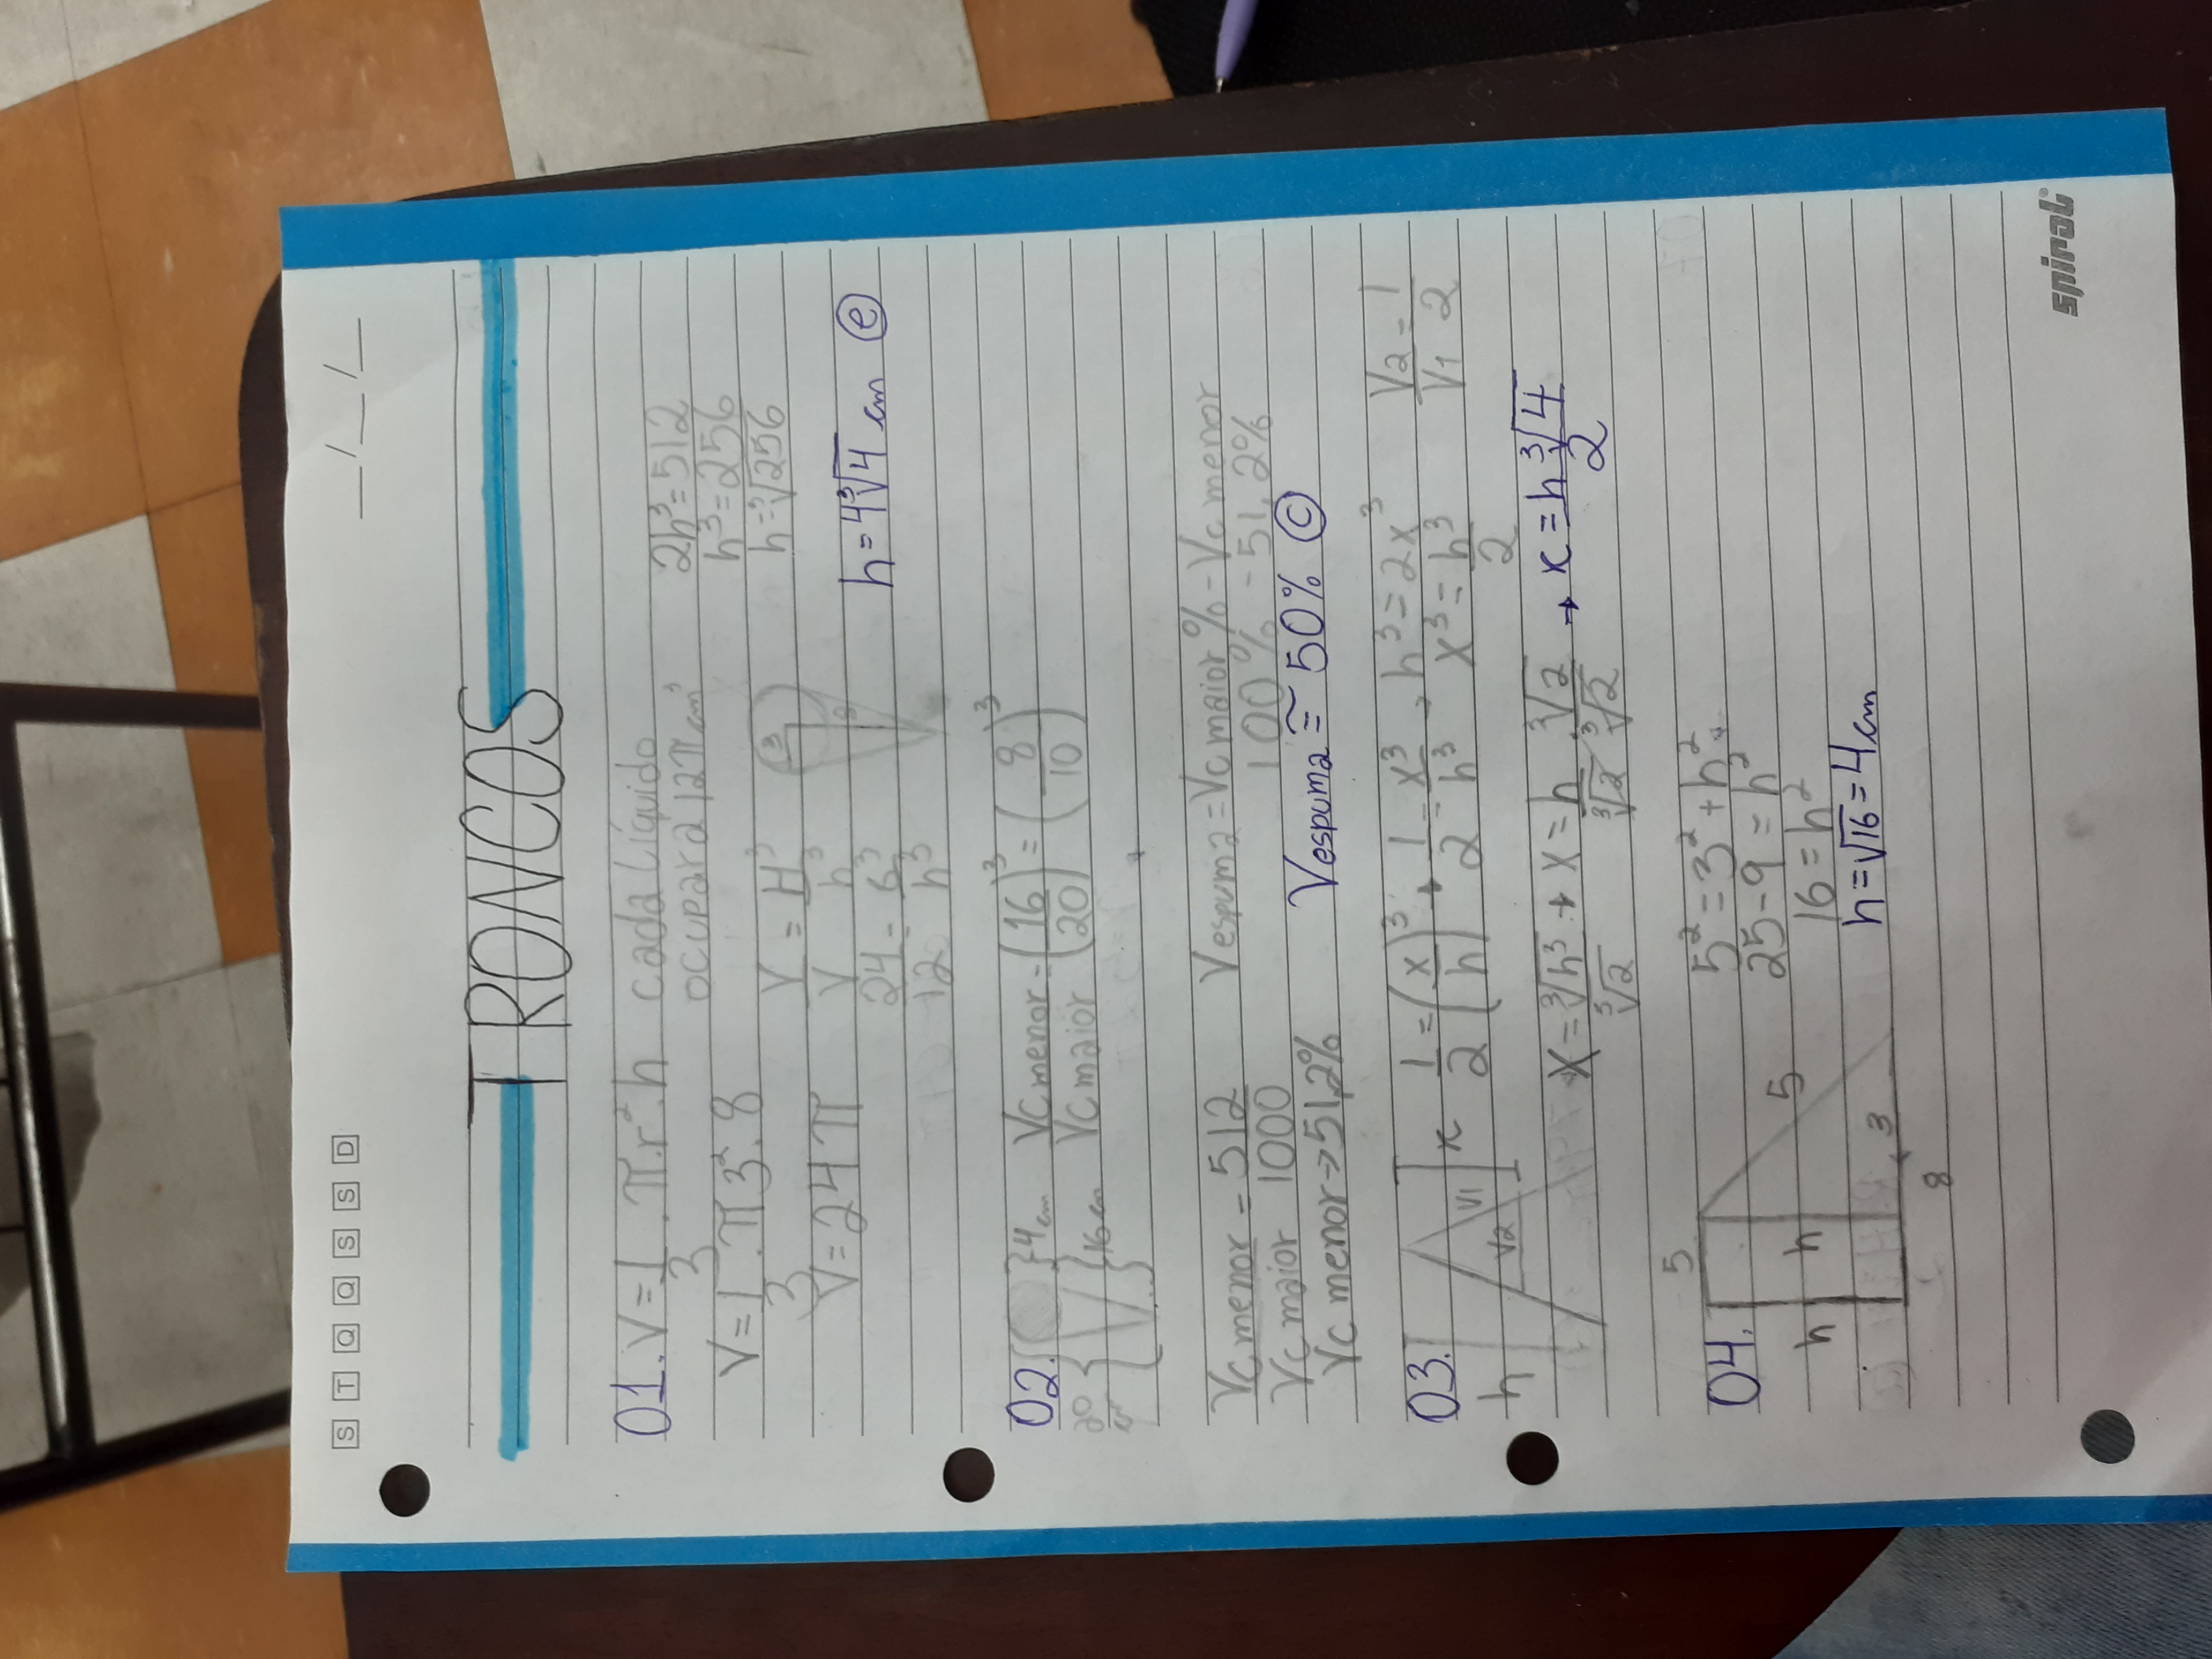 S T Q Q S S D
__/__/__
TRONCOS
01. V = 1/3 . π.r².h cada líquido ocupara 12π cm³
V = 1/3 . π 3². 8
V = 24π
V/V = H³/h³
24/12 = 8³/h³
2h³ = 512
h³ = 256
h = ³√256
h = 4³√4 cm (e)
02. 20 cm }4cm }16cm
Vc menor/Vc maior = (16/20)³ = (8/10)³
Vc menor/Vc maior = 512/1000
Vc menor → 51,2%
Vespuma = Vc maior% - Vc menor
100% - 51,2%
Vespuma ≅ 50% (c)
03. h V1 V2 x
1/2 = (x/h)³ → 1/2 = x³/h³ → h³ = 2x³
x³ = h³/2
V2/V1 = 1/2
x = ³√h³/³√2 → x = h/³√2 . ³√2/³√2 → x = h³√4/2
04. 5
h h 5
3
8
5² = 3² + h²
25 - 9 = h²
16 = h²
h = √16 = 4 cm
spiral®